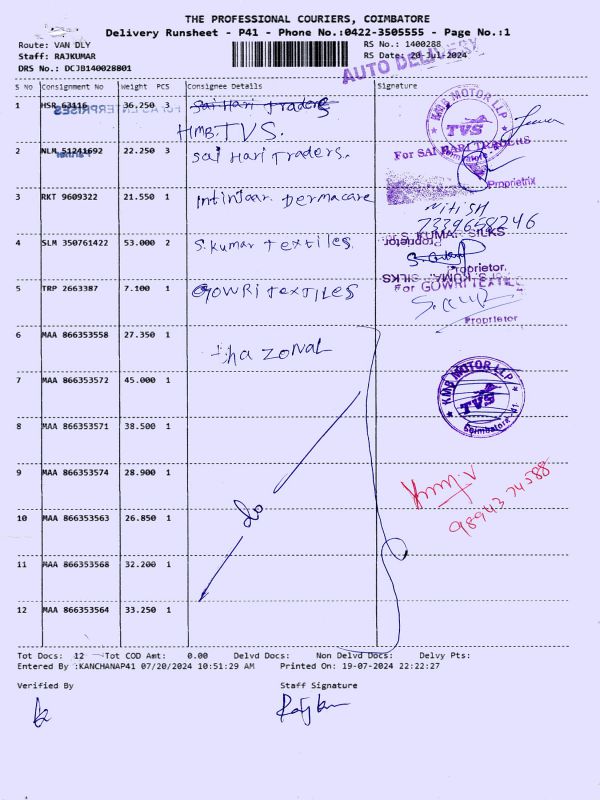 THE PROFESSIONAL COURIERS, COIMBATORE
Delivery Runsheet - P41 - Phone No.:0422-3505555 - Page No.:1
Route: VAN DLY
RS No.: 1400288
Staff: RAJKUMAR
RS Date: 20-Jul-2024
AUTO DELIVERY
DRS No.: DCJB140028801
S No Consignment No Weight PCS Consignee Details Signature
1 HSR 63116 36.250 3 Sai Hari Traders
HMB.TVS.
KMB MOTOR LLP
TVS
Coimbatore
2 NLR 51241692 22.250 3 Sai Hari Traders.
For SAI HARI TRADERS
Proprietrix
3 RKT 9609322 21.550 1 Dermacare
NITISH
7339668246
4 SLM 350761422 53.000 2 S.kumar Textiles.
S. KUMAR SILKS
Proprietor
Proprietor.
S. KUMAR SILKS
5 TRP 2663387 7.100 1 GOWRI TEXTILES
For GOWRI TEXTILE
Proprietor
6 MAA 866353558 27.350 1
ZONAL
7 MAA 866353572 45.000 1
KMB MOTOR LLP
TVS
Coimbatore - 41
8 MAA 866353571 38.500 1
9 MAA 866353574 28.900 1
98943 74588
10 MAA 866353563 26.850 1
do
11 MAA 866353568 32.200 1
12 MAA 866353564 33.250 1
Tot Docs: 12 Tot COD Amt: 0.00 Delvd Docs: Non Delvd Docs: Delvy Pts:
Entered By :KANCHANAP41 07/20/2024 10:51:29 AM Printed On: 19-07-2024 22:22:27
Verified By Staff Signature